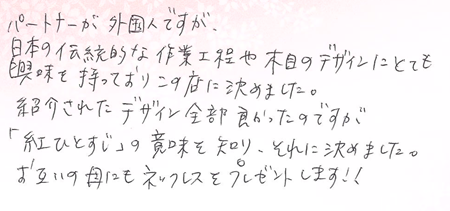 パートナーが外国人ですが、
日本の伝統的な作業工程や木目のデザインにとても
興味を持っておりこの店に決めました。
紹介されたデザイン全部良かったのですが
「紅ひとすじ」の意味を知り、それに決めました。
お互いの母にもネックレスをプレゼントします!!